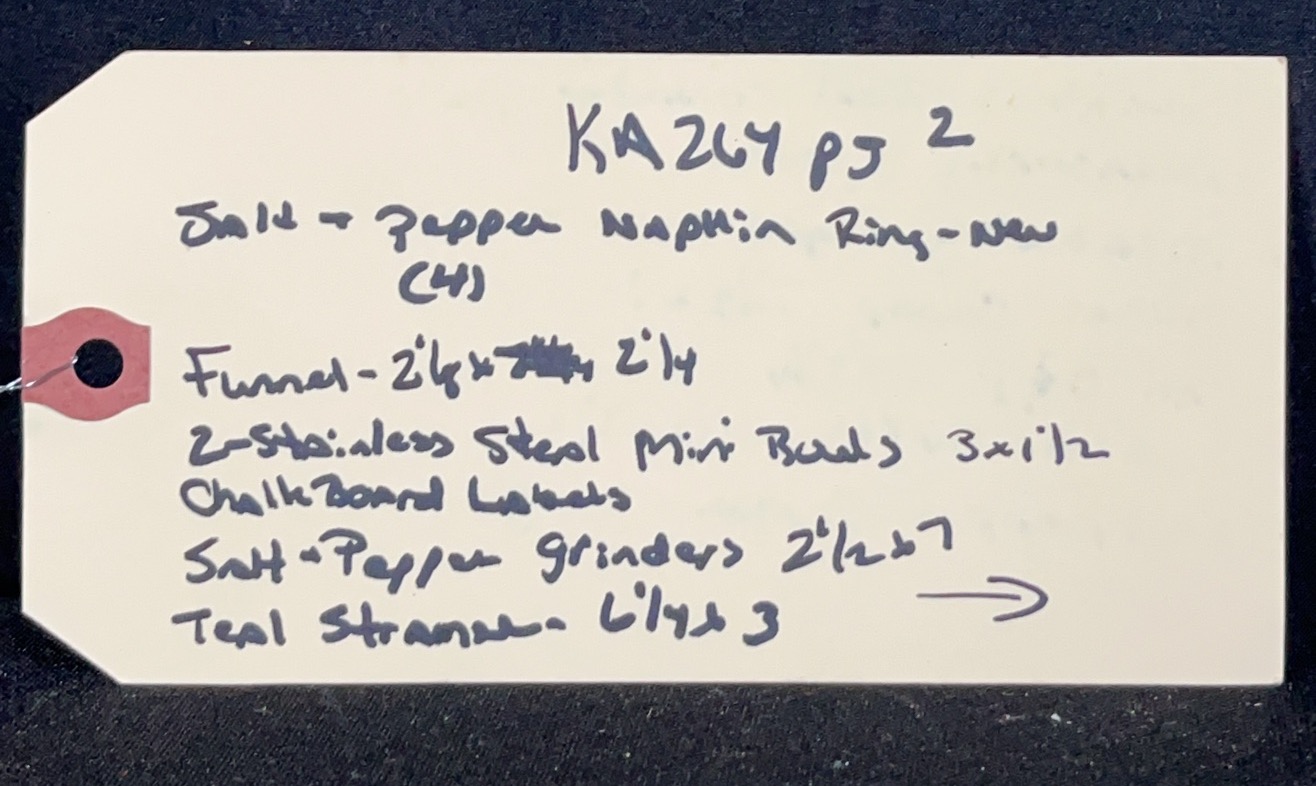 KA264 pg 2
Salt + Pepper Napkin Ring - New
(4)
Funnel - 2 1/8 x 2 1/4
2 - Stainless Steel Mini Bowls 3x1 1/2
ChalkBoard Labels
Salt + Pepper grinders 2 1/2 x 7
Teal Strainer - 6 1/4 x 3 →